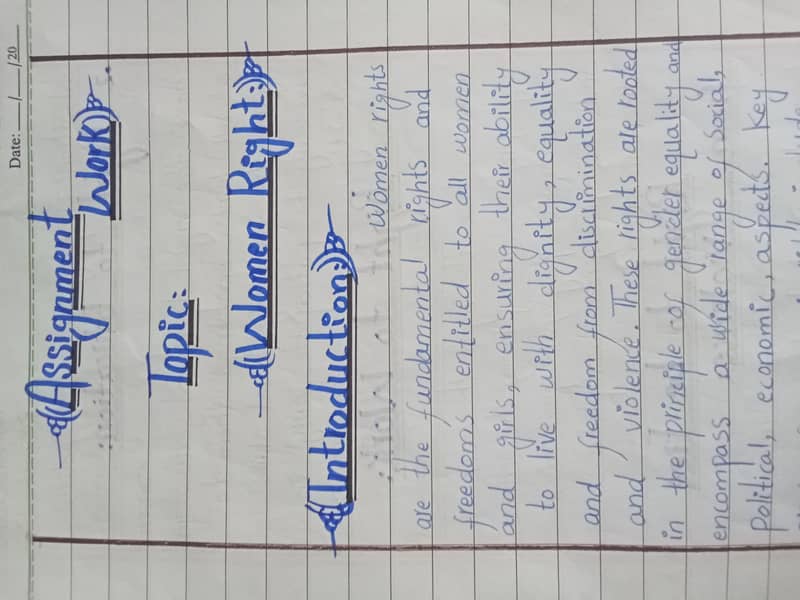 Date: ___/___/20___
Assignment
Work
Topic:
Women Right:
Introduction:
Women rights
are the fundamental rights and
freedoms entitled to all women
and girls, ensuring their ability
to live with dignity, equality
and freedom from discrimination
and violence. These rights are rooted
in the principle of gender equality and
encompass a wide range of Social,
Political, economic, aspects. Key